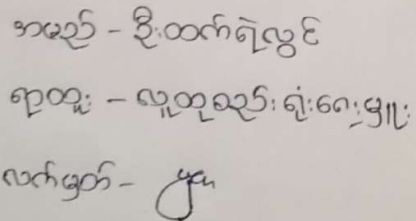 အမည် - ဦးထက်ရဲလွင်
ရာထူး - လူထုစည်းရုံးရေးမှူး
လက်မှတ် -